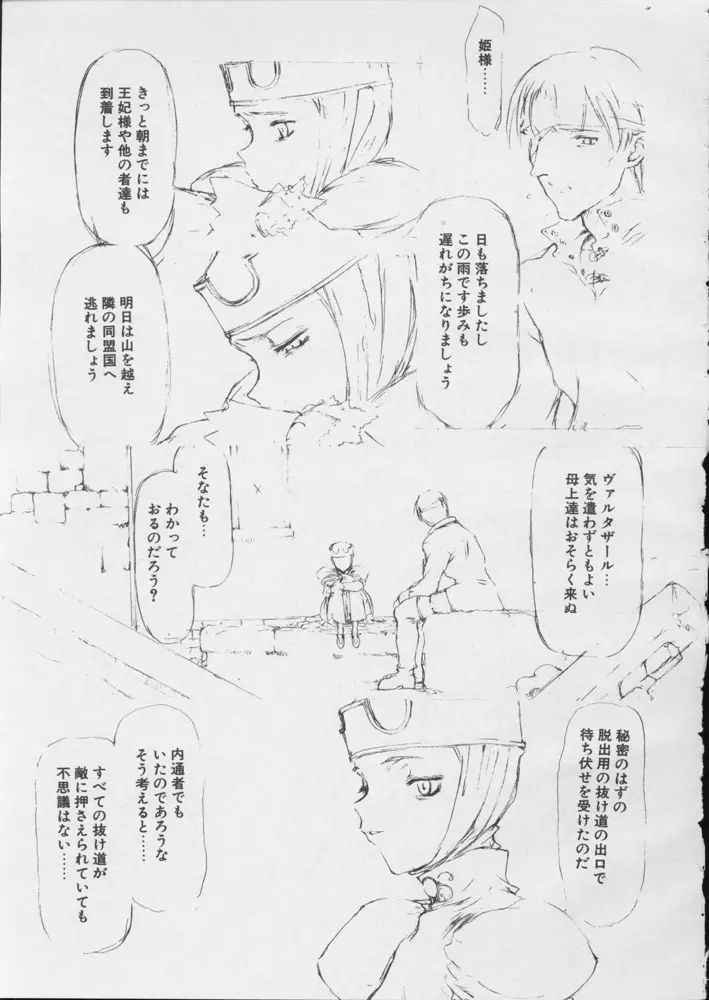 姫様……
日も落ちましたし
この雨です歩みも
遅れがちになりましょう
きっと朝までには
王妃様や他の者達も
到着します
明日は山を越え
隣の同盟国へ
逃れましょう
ヴァルタザール…
気を遣わずともよい
母上達はおそらく来ぬ
そなたも…
わかって
おるのだろう?
秘密のはずの
脱出用の抜け道の出口で
待ち伏せを受けたのだ
内通者でも
いたのであろうな
そう考えると……
すべての抜け道が
敵に押さえられていても
不思議はない………